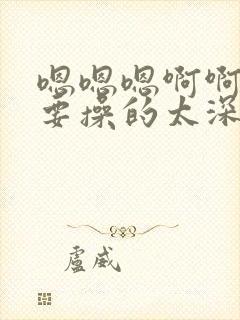 嗯嗯嗯啊啊
要操的太深
盧威